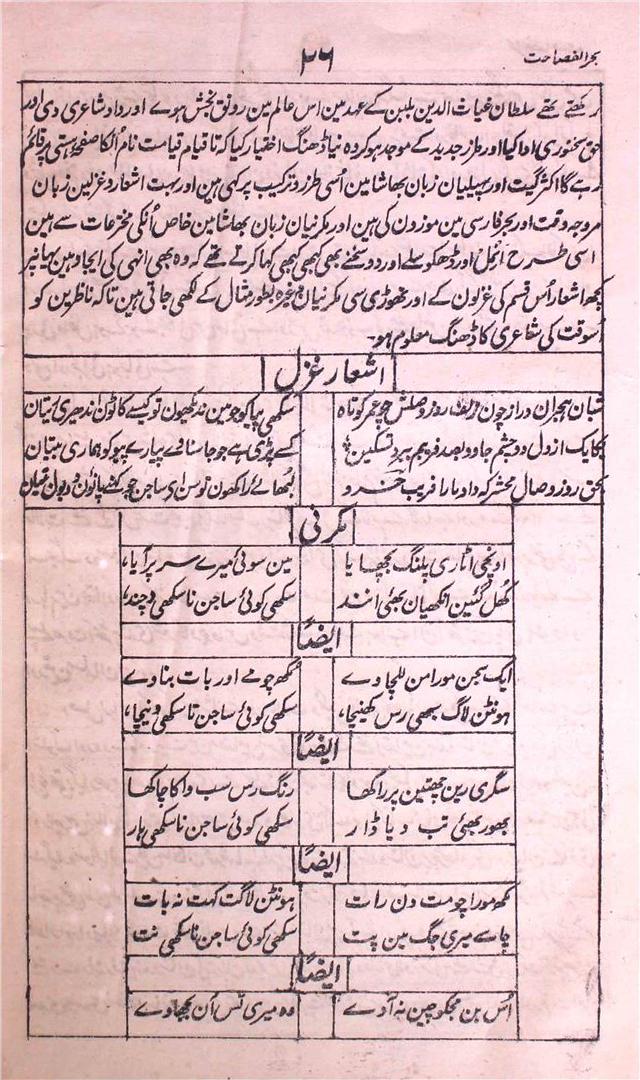 بحر الفصاحت
۲۶
رکھتے تھے سلطان غیاث الدین بلبن کے عہد مین اس عالم مین رونق بخش ہوے اور داد شاعری دی اور
حق سخنوری ادا کیا اور طرز جدید کے موجد ہو کر وہ نیا ڈھنگ اختیار کیا کہ تا قیام قیامت نام اُنکا صفحہ ہستی پر قائم
رہے گا اکثر گیت اور پہیلیان زبان بھاشا مین اُسی طرز و ترکیب پر کہی ہین اور بہت اشعار و غزلین زبان
مروجہ وقت اور بحر فارسی مین موزون کی ہین اور مکرنیان زبان بھاشا مین خاص اُنکی مخترعات سے ہین
اسی طرح انمل اور ڈھکوسلے اور دوسخنے بھی کبھی کبھی کہا کرتے تھے کہ وہ بھی انہی کی ایجاد ہین یہان پر
کچھ اشعار اُس قسم کی غزلون کے اور تھوڑی سی مکرنیان وغیرہ بطور مثال کے لکھی جاتی ہین تاکہ ناظرین کو
اُسوقت کی شاعری کا ڈھنگ معلوم ہو۔
اشعار غزل
شبان ہجران دراز چون زلف و روز وصلش چو عمر کوتاہ سکھی پیا کو جو مین نہ دیکھون تو کیسے کاٹون اندھیری رتیان
یکایک از دل دو چشم جادو بصد فریبم ببرد تسکین کسے پڑی ہے جو جا سناوے پیارے پیو کو ہماری بتیان
بحق روز وصال محشر کہ داد مارا فریب خسرو لبھائے راکھون تو سن اے ساجن جو کہنے پاؤن دو بول بتیان
مکرنی
اونچی اٹاری پلنگ بچھایا مین سوئی میرے سر پر آیا،
کھُل گئین انکھیان بھئی انند سکھی کوئی ساجن نا سکھی چند،
ایضاً
ایک سجن مورا من للچاوے مکھ چومے اور بات بناوے
ہونٹن لاگ بھی رس کھینچا، سکھی کوئی ساجن نا سکھی نیچا،
ایضاً
سگری رین چھتین پر راکھا رنگ رس سب وا کا چاکھا
بھور بھئی تب دیا ڈار سکھی کوئی ساجن نا سکھی ہار
ایضاً
مکھ مورا چومت دن رات ہونٹن لاگت کہت نہ بات
جا سے میری جگ مین پت سکھی کوئی ساجن نا سکھی نت
ایضاً
اُس بن مجکو چین نہ آوے وہ میری تس اُن بجھاوے